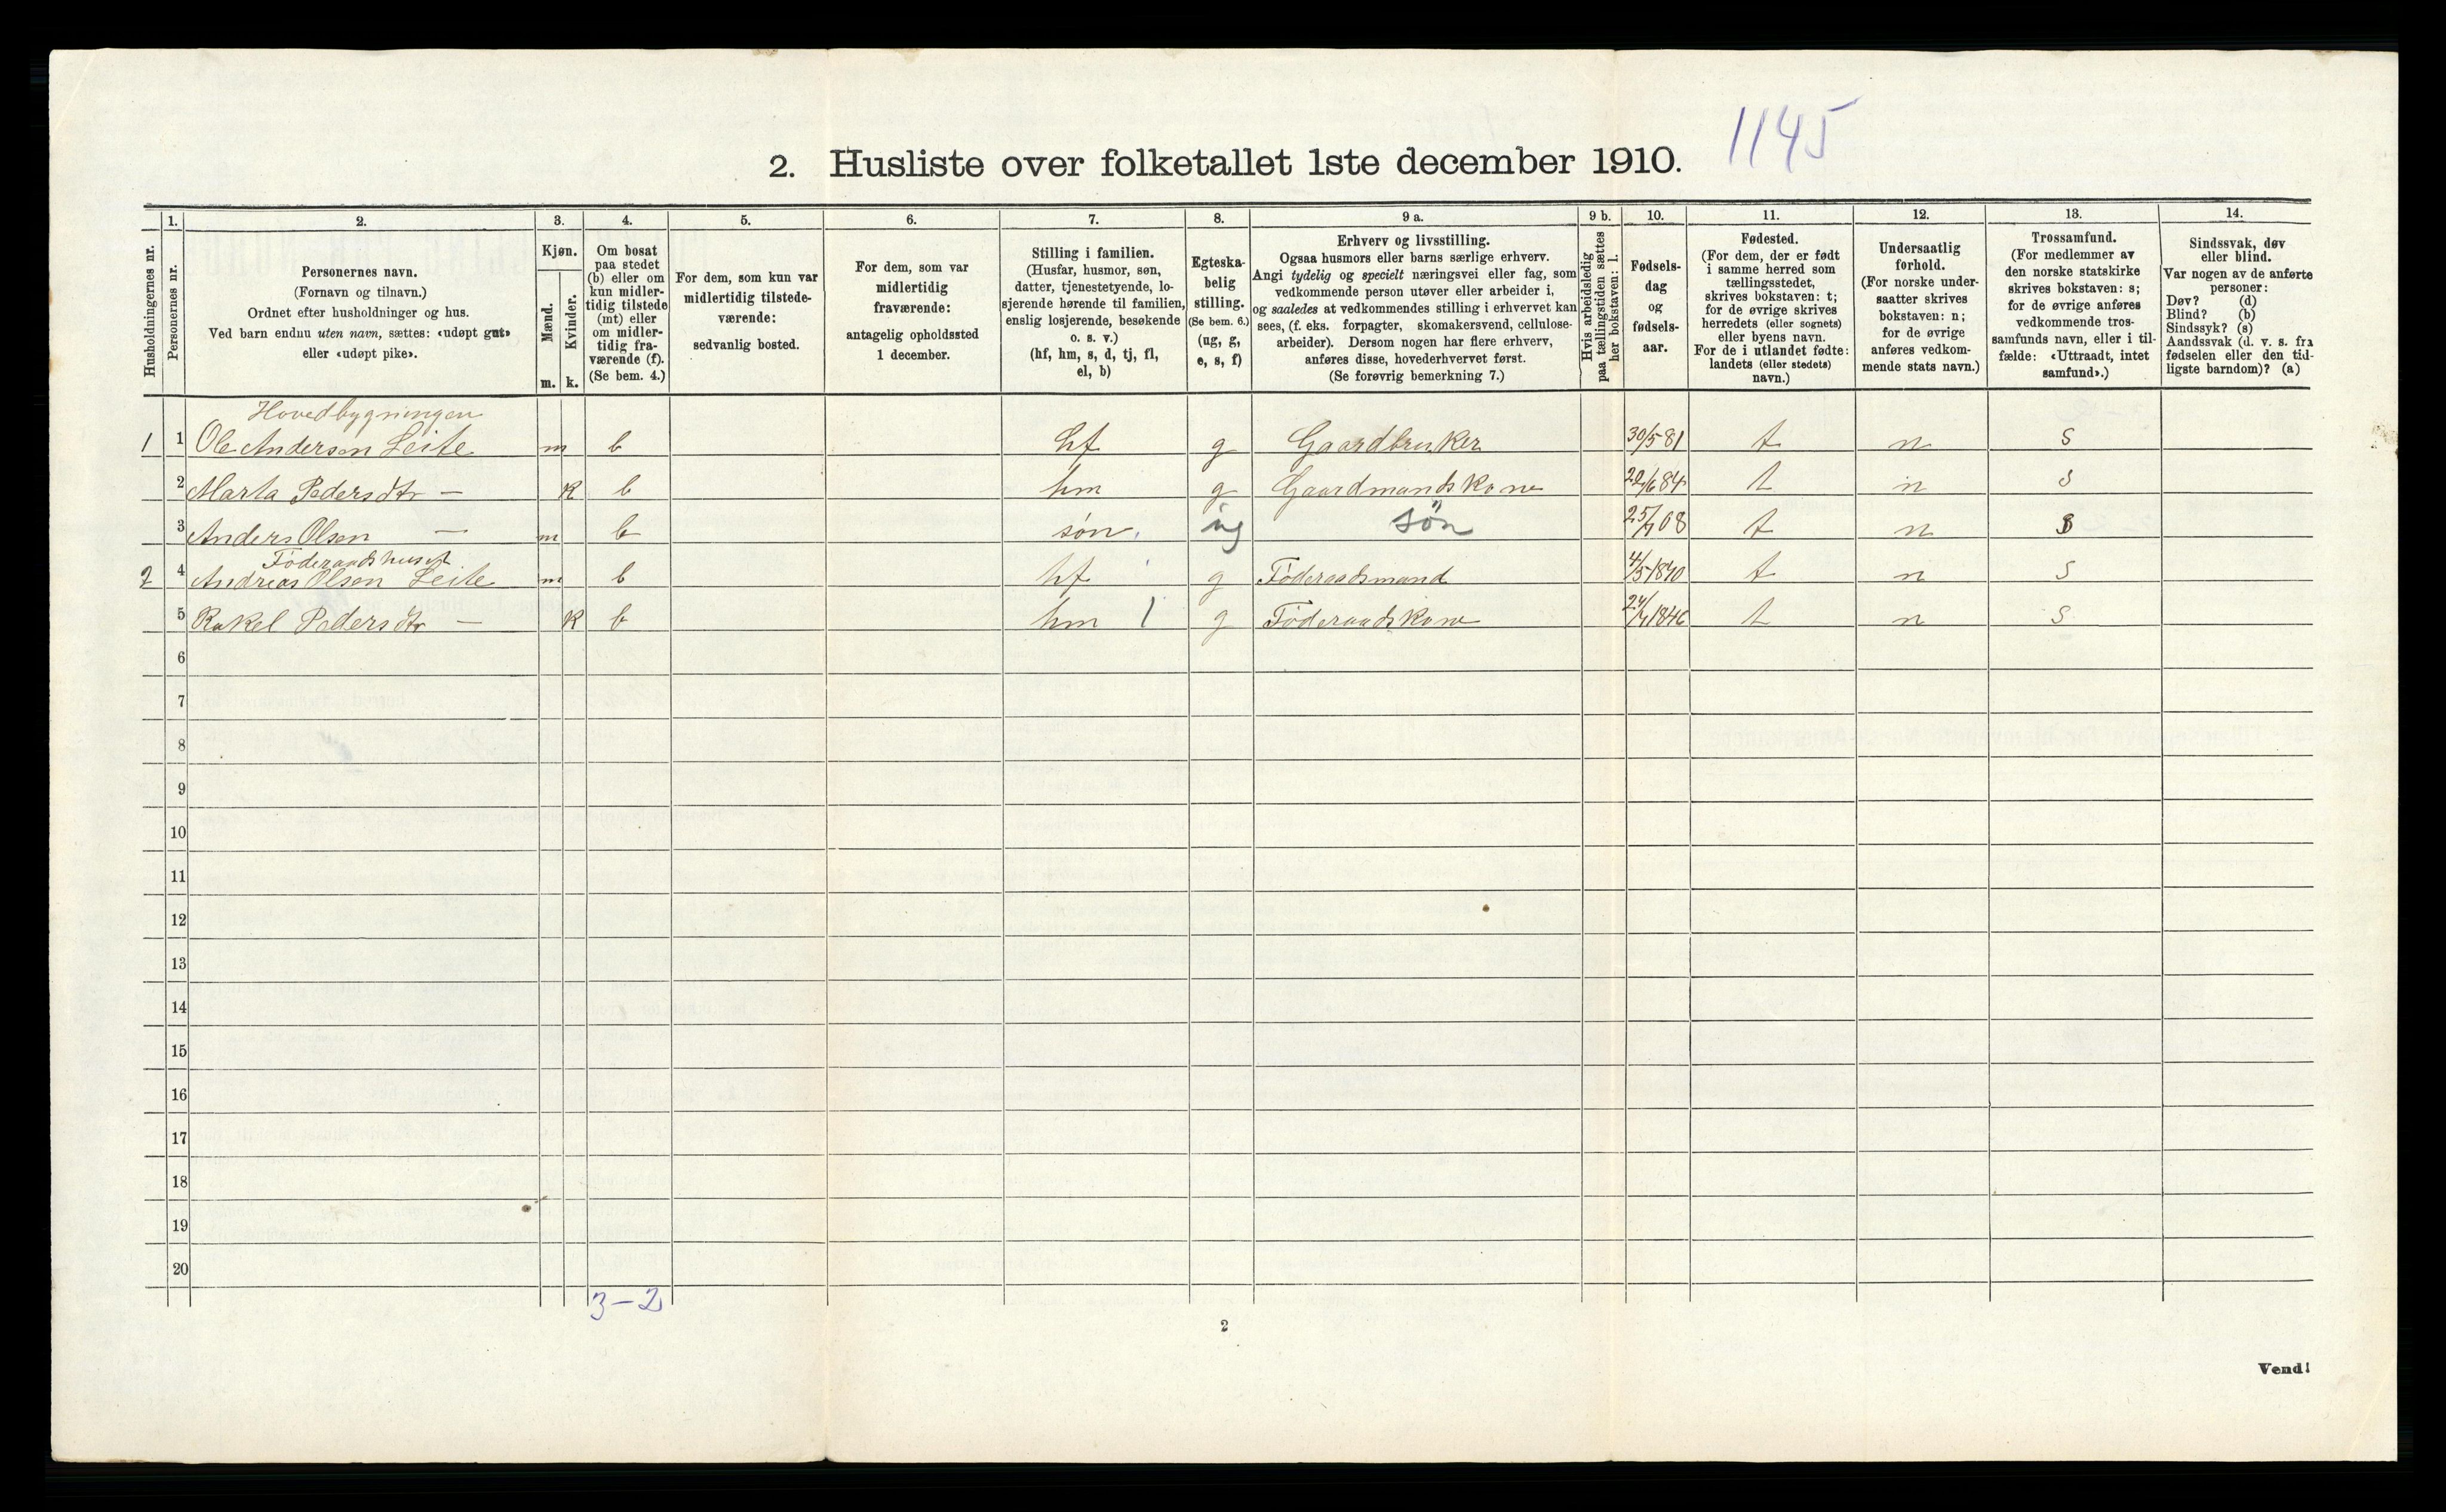 1145
2. Husliste over folketallet 1ste december 1910.
Husholdningernes nr.
1.
Personernes nr.
2.
Personernes navn.
(Fornavn og tilnavn.)
Ordnet efter husholdninger og hus.
Ved barn endnu uten navn, sættes: «udøpt gut»
eller «udøpt pike».
3.
Kjøn.
Mænd.
Kvinder.
m. k.
4.
Om bosat
paa stedet
(b) eller om
kun midler-
tidig tilstede
(mt) eller
om midler-
tidig fra-
værende (f).
(Se bem. 4.)
5.
For dem, som kun var
midlertidig tilstede-
værende:
sedvanlig bosted.
6.
For dem, som var
midlertidig
fraværende:
antagelig opholdssted
1 december.
7.
Stilling i familien.
(Husfar, husmor, søn,
datter, tjenestetyende, lo-
sjerende hørende til familien,
enslig losjerende, besøkende
o. s. v.)
(hf, hm, s, d, tj, fl,
el, b)
8.
Egteska-
belig
stilling.
(Se bem. 6.)
(ug, g,
e, s, f)
9 a.
Erhverv og livsstilling.
Ogsaa husmors eller barns særlige erhverv.
Angi tydelig og specielt næringsvei eller fag, som
vedkommende person utøver eller arbeider i,
og saaledes at vedkommendes stilling i erhvervet kan
sees, (f. eks. forpagter, skomakersvend, cellulose-
arbeider). Dersom nogen har flere erhverv,
anføres disse, hovederhvervet først.
(Se forøvrig bemerkning 7.)
9 b.
Hvis arbeidsledig
paa tællingstiden sættes
her bokstaven: l.
10.
Fødsels-
dag
og
fødsels-
aar.
11.
Fødested.
(For dem, der er født
i samme herred som
tællingsstedet,
skrives bokstaven: t;
for de øvrige skrives
herredets (eller sognets)
eller byens navn.
For de i utlandet fødte:
landets (eller stedets)
navn.)
12.
Undersaatlig
forhold.
(For norske under-
saatter skrives
bokstaven: n;
for de øvrige
anføres vedkom-
mende stats navn.)
13.
Trossamfund.
(For medlemmer av
den norske statskirke
skrives bokstaven: s;
for de øvrige anføres
vedkommende tros-
samfunds navn, eller i til-
fælde: «Uttraadt, intet
samfund».)
14.
Sindssvak, døv
eller blind.
Var nogen av de anførte
personer:
Døv? (d)
Blind? (b)
Sindssyk? (s)
Aandssvak (d. v. s. fra
fødselen eller den tid-
ligste barndom)? (a)
Hovedbygningen
1 1 Ole Anderson Leite m b hf g Gaardbruker 30/5 81 t n s
2 Marta Pedersdtr — k b hm g Gaardmandskone 22/6 84 t n s
3 Anders Olsen — m b søn. ug søn 25/7 08 t n s
Føderaadshuset
2 4 Andreas Olsen Leite m b hf g Føderaadsmand 4/5 1840 t n s
5 Rakel Pedersdtr — k b hm 1 g Føderaadskone 24/7 1846 t n s
6
7
8
9
10
11
12
13
14
15
16
17
18
19
20
3-2
2
Vend!